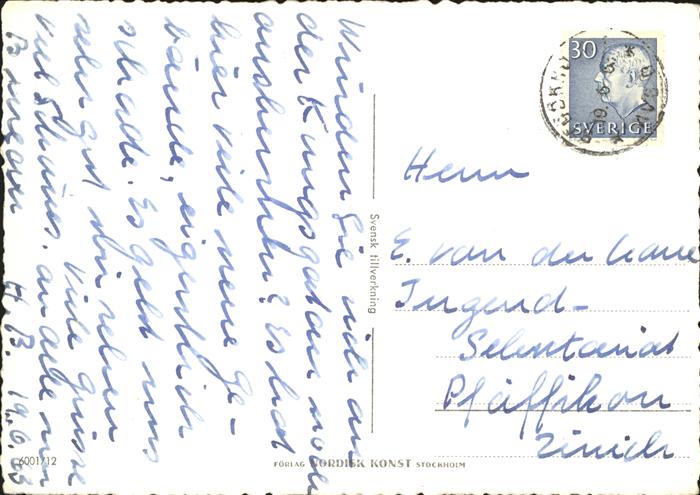 Würden Sie sich an
der Kungsgatan noch
auskennen? Es hat
hier viele neue Ge-
bäude, eigentlich
schade. Es geht uns
sehr gut, wir sehen
viel Schönes. Viele Grüsse
an alle von
H. B. 19.6.63
30
SVERIGE
Herrn
E. van der
Jugend-
Sekretariat
Pfäffikon
Zürich
Svensk tillverkning
6001/12
FÖRLAG NORDISK KONST STOCKHOLM